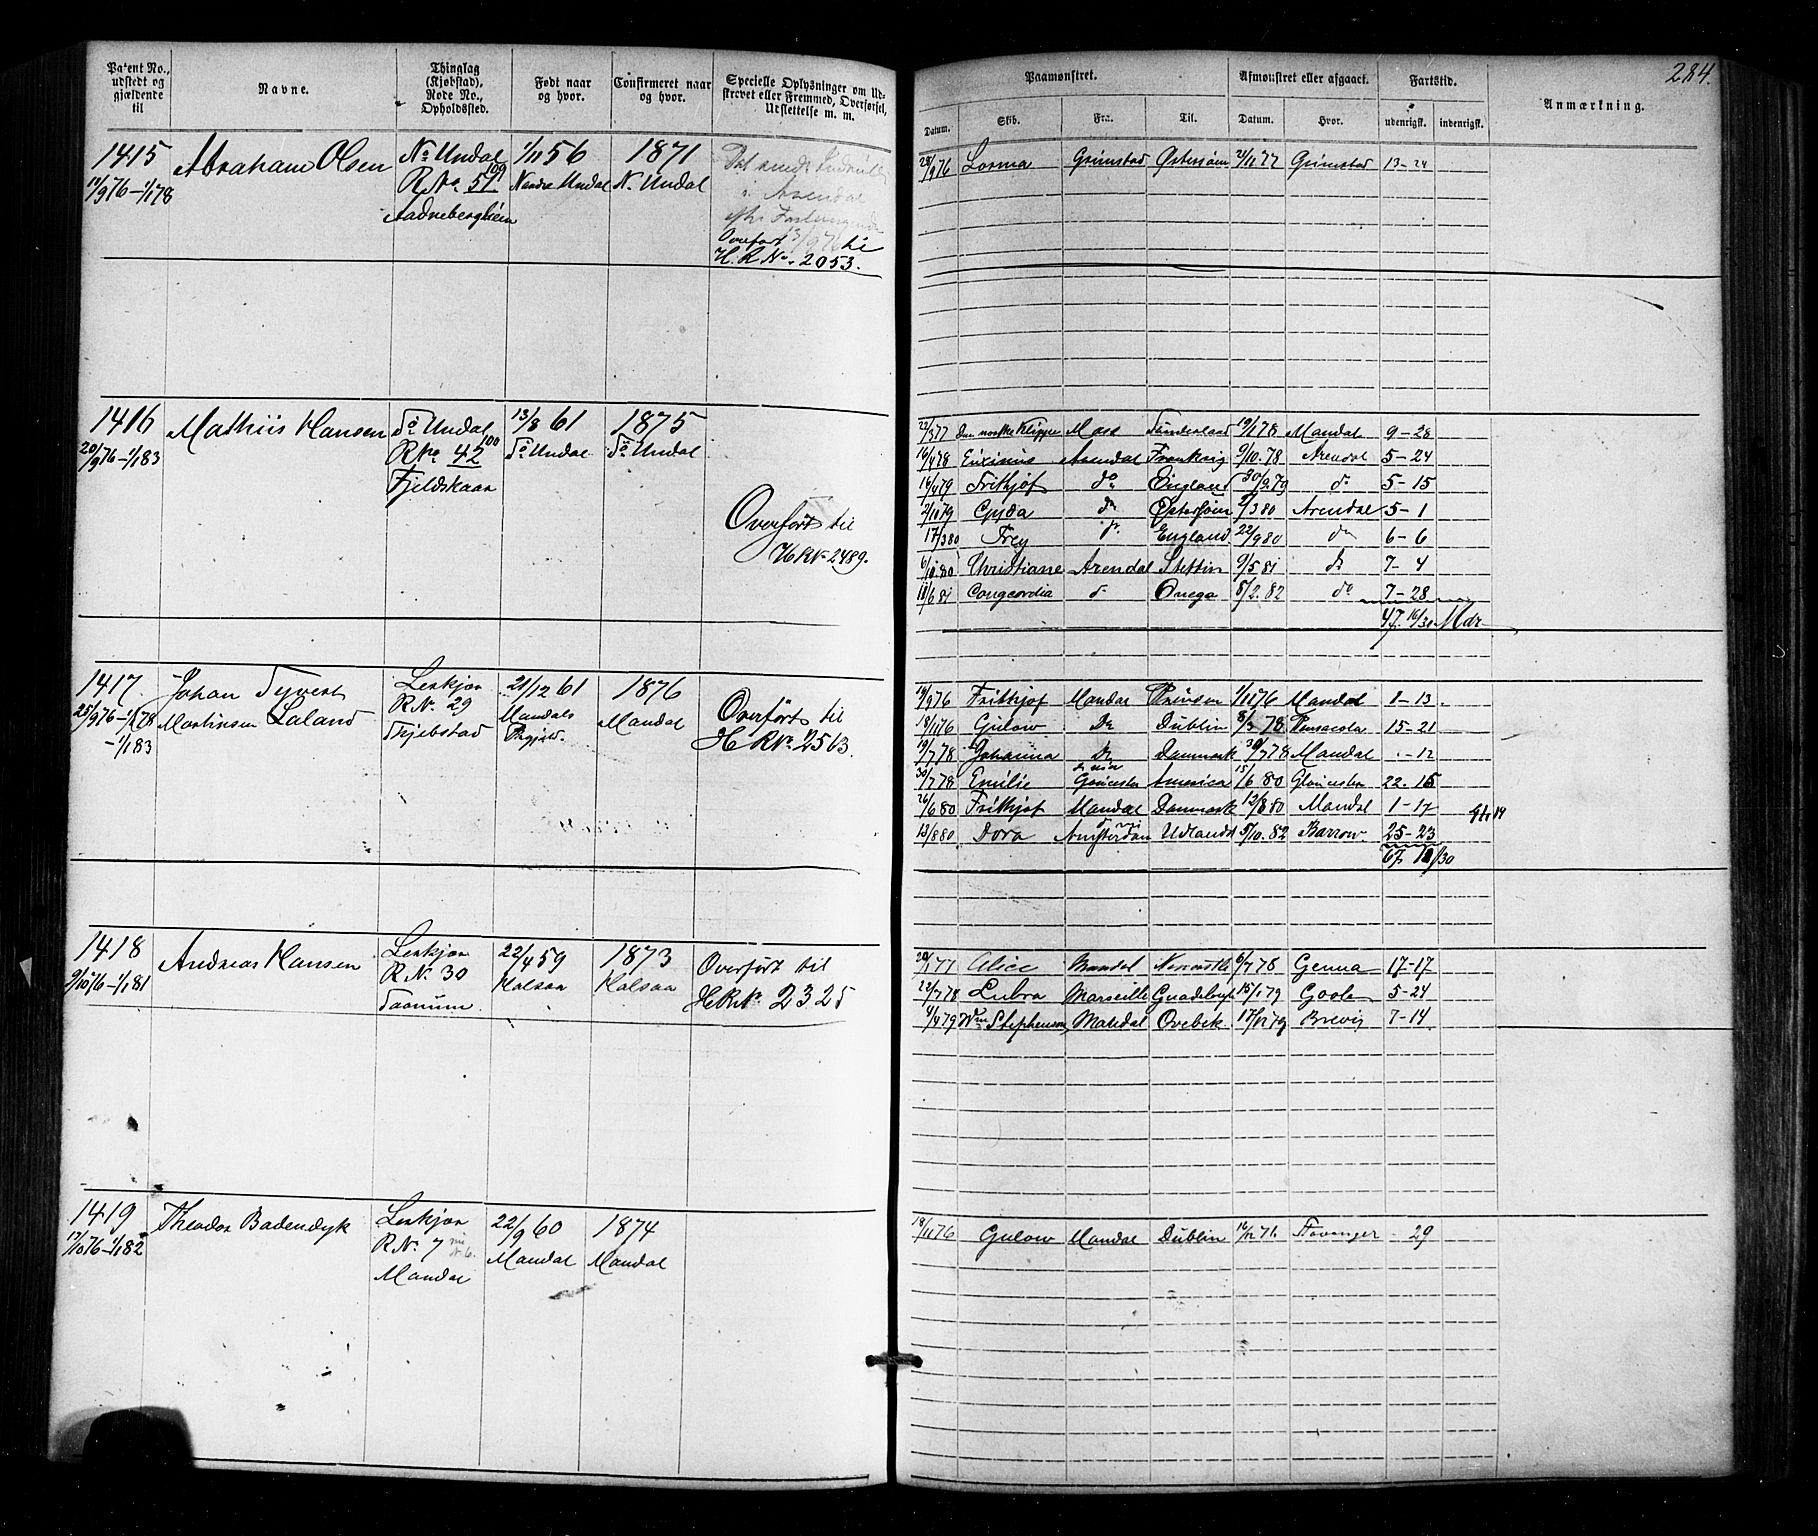 Patent No., udstedt og gjældende til
Navne.
Thinglag (Kjøbstad), Rode No., Opholdssted.
Født naar og hvor.
Confirmeret naar og hvor.
Specielle Oplysninger om Udskrevet eller Fremmed, Overførsel, Udslettelse m. m.
Paamønstret.
Datum. Skib. Fra. Til.
Afmønstret eller afgaaet.
Datum. Hvor.
Fartstid.
udenrigsk. indenrigsk.
Anmærkning.
284.
1415
11/9 76 – 1/1 78
Abraham Olsen
No Undal
RNo 51 109
1/11 56
Nordre Undal
1871
N. Undal
Overført 13/9 76 til
H. R No. 2053.
28/9 76 Grimstad Østersøen 21/11 77 Grimstad 13-24
1416
20/9 76 – 1/1 83
Mathiis Hansen
So Undal
RNo 42 100
Fjeldskaar
13/8 61
So Undal
1875
So Undal
Overført til
H RNo 2489.
22/3 77 Den norske Klippe Moss Sunderland 19/1 78 Mandal 9-28
16/4 78 Euxinus Arendal Frankrig 9/10 78 Arendal 5-24
16/4 79 Frithjof do England 30/9 79 do 5-15
2/10 79 Gyda do Østersøen 3 80 Arendal 5-1
17/3 80 Frey do England 22/9 80 do 6-6
6/10 80 Christiane Arendal Stettin 9/5 81 do 7-4
11/6 81 Congcordia do Onega 8/2 82 do 7-28
47. 16/30 Mdr
1417.
25/9 76 – 1/1 78
– 1/1 83
Johan Syvert
Martinsen Laland
Leskjær
R N. 29
21/12 61
Mandals
1876
Mandal
Overført til
H RNo. 2563.
19/9 76 Frithjof Mandal 1/11 76 Mandal 1-13
18/11 76 Gulow Do Dublin 8/3 78 Pensacola 15-21
19/7 78 Johanna Do Danmark 30/7 78 Mandal -12
30/7 78 Emilie America 15/6 80 Gloucester 22.15
26/6 80 Frithjof Mandal Danmark 12/8 80 Mandal 1-17
13/8 80 Dora Amsterdam Udlandet 5/10 82 Barrow 25-23
1418
9/10 76 – 1/1 81
Andreas Hansen
Leskjær
R N. 30
22/4 59
Halsaa
1873
Halsaa
Overført til
H RNo. 2325
20/1 77 Alice Mandal Newcastle 6/7 78 Genua 17-17
22/7 78 Lubra Marseille 15/1 79 Goole 5-24
4/4 79 Wm Stephenson Mandal 17/12 79 Brevig 7-14
1419
12/10 76 – 1/1 82
Theodor Badendyk
Leskjær
R N. 7
Mandal
22/9 60
Mandal
1874
Mandal
18/11 76 Gulow Mandal Dublin 76 Stavanger - 29